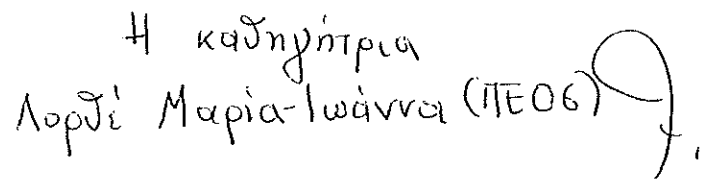 Η καθηγήτρια
Λορθέ Μαρία-Ιωάννα (ΠΕ06)